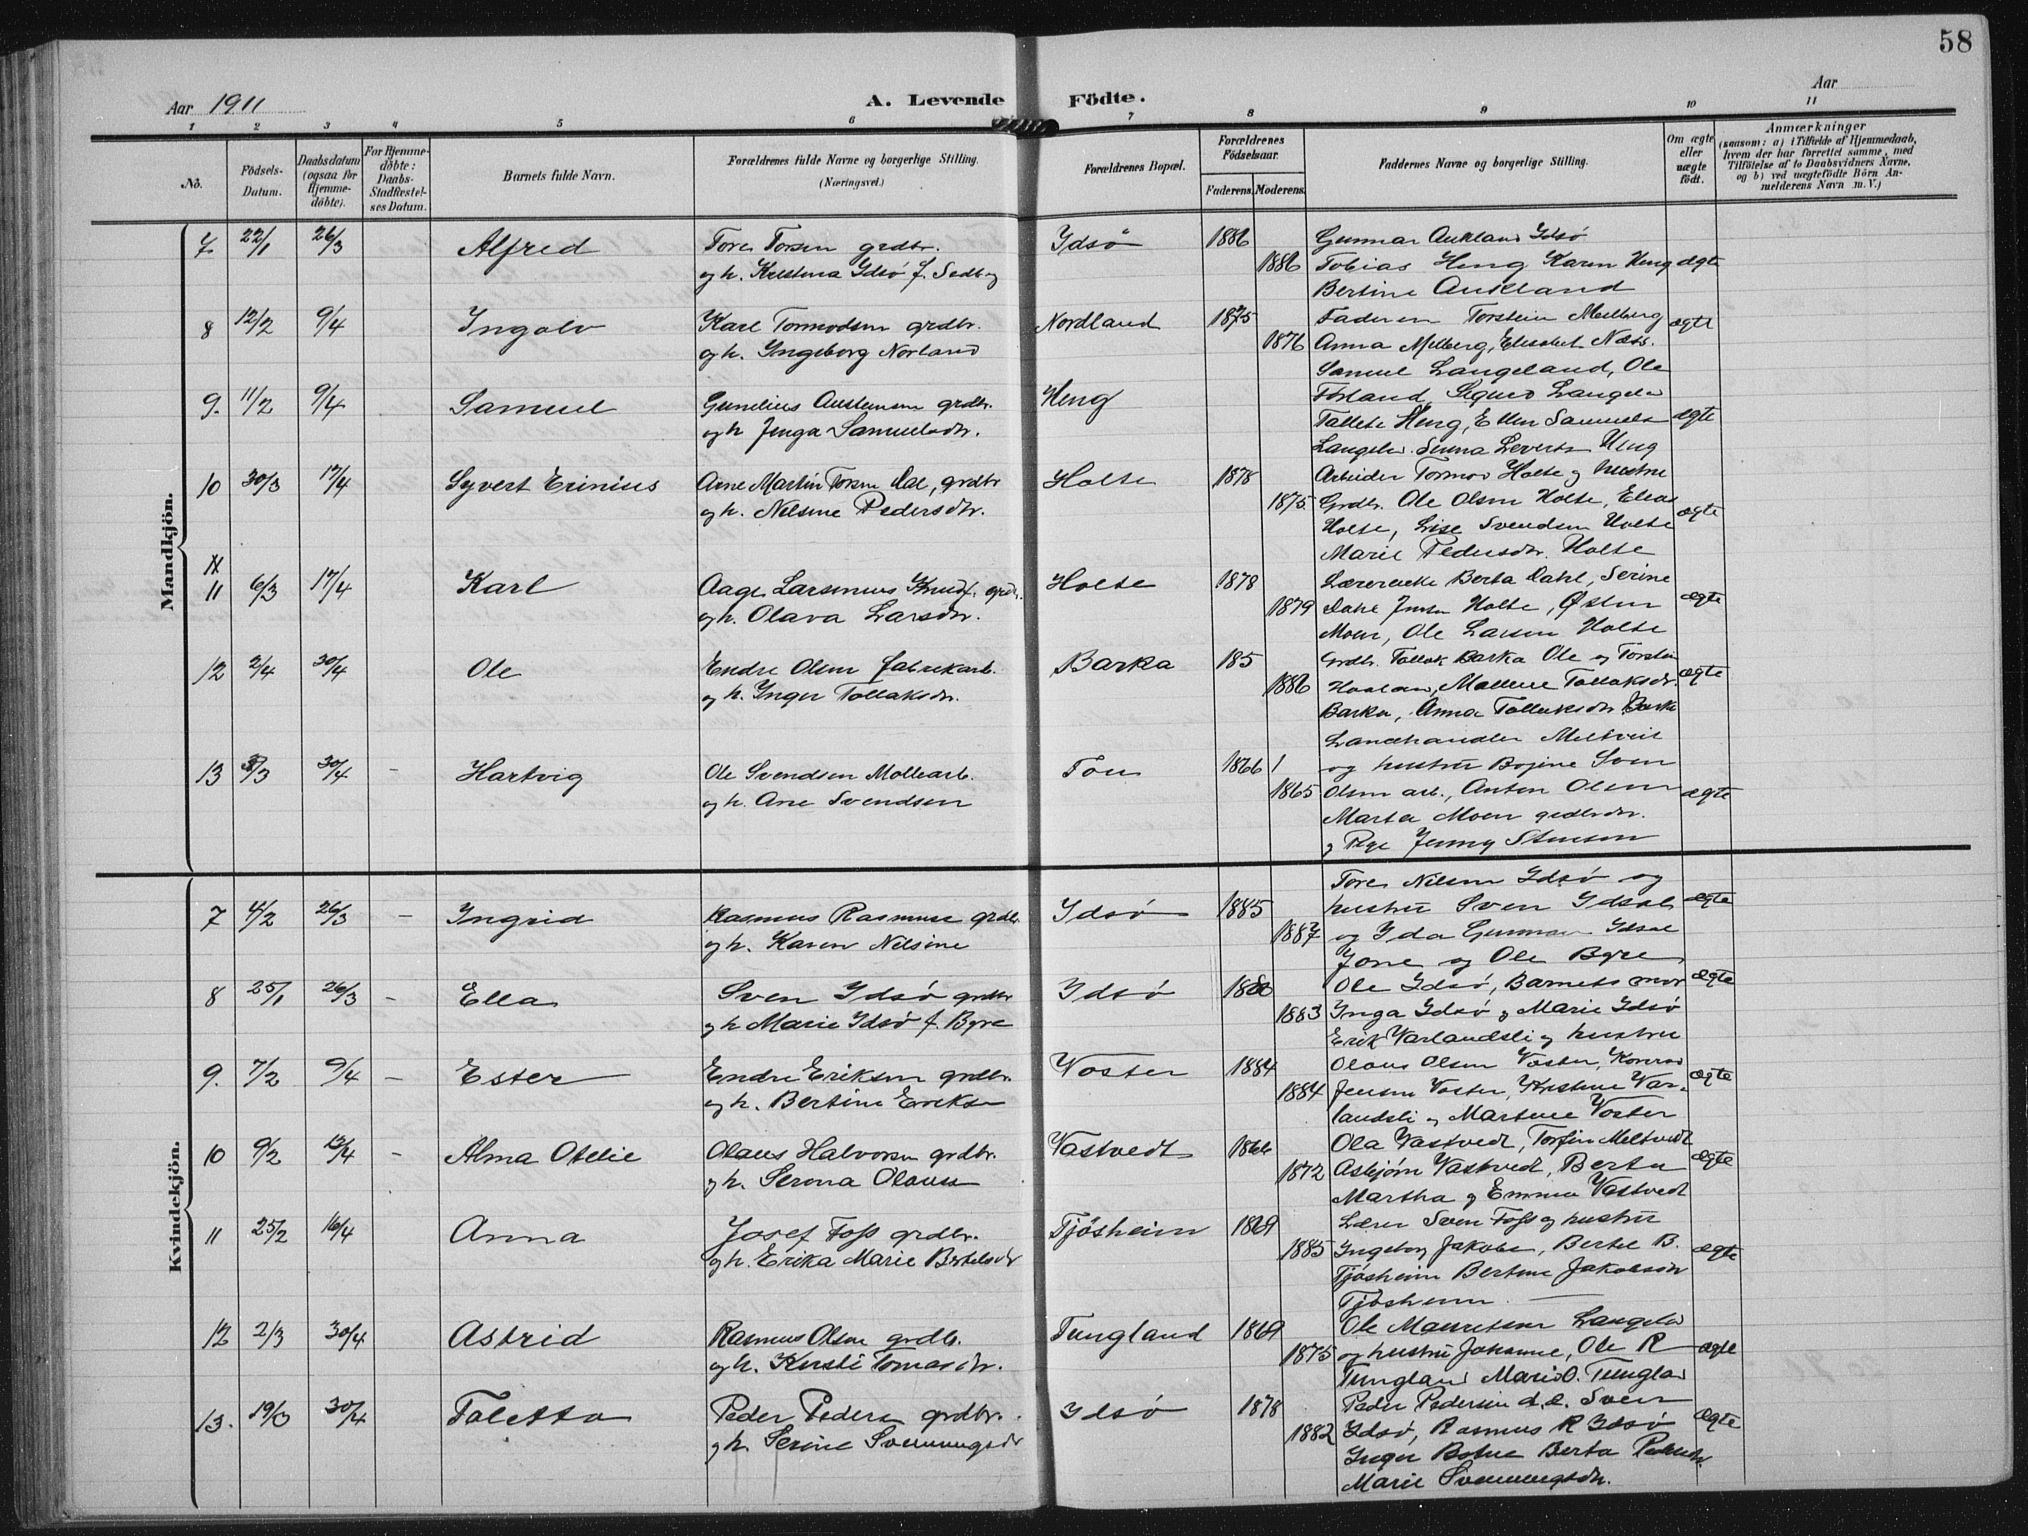 58
Aar 1911
A. Levende Födte.
Aar
1 2 3 4 5 6 7 8 9 10 11
No.
Födsels-Datum.
Daabsdatum (ogsaa för Hjemme-döbte).
For Hjemme-döbte: Daabs-Stadfæstel-ses Datum.
Barnets fulde Navn.
Forældrenes fulde Navne og borgerlige Stilling. (Næringsvei.)
Forældrenes Bopæl.
Forældrenes Födselsaar.
Faderens. Moderens.
Faddernes Navne og borgerlige Stilling.
Om ægte eller uægte födt.
Anmærkninger
(saasom: a) i Tilfælde af Hjemmedaab,
hvem der har forrettet samme, med
Tilföielse af to Daabsvidners Navne,
og b) ved uægtefödte Börn An-
melderens Navn m. V.)
Mandkjön.
7. 22/1 26/3 Alfred Tore Torsen grdbr. Idsö 1886 Gunnar Aukland Idsö
og h. Kristina Idsö f. 1886 Tobias Heng Karen Heng ægte
Bertine Aukland
8 12/2 9/4 Ingolv Karl Tormodsen grdbr. Nordland 1875 Faderen Torstein Melberg ægte
og h. Ingeborg Norland 1876 Anna Melberg, Elisabet Næts.
Samuel Langeland, Ole
9. 11/2 9/4 Samuel Gunelius Austensen grdbr. Heng Förland, Sigurd Langela
og h Jenga Samuelsdr. Tallete Heng, Ellen Samuels ægte
Langela. Heng
10 30/3 17/4 Syvert Erinius Arne Martin Torsen Dal, grdbr Holte 1878 Arbeider Tormod Holte og hustru
og h. Nilsine Pedersdtr. 1875 Grdbr. Ole Olsen Holte, Elias
Holte, Lise Svendsen Holte ægte
Marie Pedersdtr. Holte
11 6/3 17/4 Karl Aage Larsenius Knuds. grdbr. Holte 1878 Berta Dahl, Serine
og h. Olava Larsdtr. 1879 Dahl Jensen Holte, Østen ægte
Moen, Ole Larsen Holte
12 2/4 30/4 Ole Endre Olsen fabrikarb. Barka 185 Grdbr. Tollak Barka Ole og Torsten
og h. Inger Tollaksdr. 1886 Mallene Tollaksdr. ægte
Barka, Anna Tollaksdr. Barka
Landhandler Meltveit
13 3/3 30/4 - Hartvig Ole Svendsen Möllearb. Tou 1866 og hustru Bojine Sven
og h. Ane Svendsen 1865 Olsen arb., Anton Olsen ægte
Marta Moen grdbrdr.
og Pige Jenny Stenson
Kvindekjön.
Tore Nilsen Idsö og
7 4/2 26/3 - Ingrid Rasmus Rasmuse grdbr. Idsö 1885 hustru Sven Idsal ægte
og h. Karen Nilsine 1887 og Ida Gunnar Idsal
Jone og Ole Byre
8 25/1 26/3 - Ella Sven Idsö grdbr Idsö 1880 Ole Idsö, Barnets mor ægte
og h Marie Idsö f. Byre 1883 Inga Idsö og Marie Idsö
Erik Varlandsli og hustru
9. 7/2 9/4 - Ester Endre Eriksen grdbr. Voster 1884 Olaus Olsen Voster, Konrad ægte
og h. Bertine Eriksen 1884 Jensen Voster, Kristine Var-
landsli og Martine Voster
10 9/2 - Alma Otelie Olaus Halvorsen grdbr. Vastvedt 1866 Ola Vastvedt, Torfin Meltvedt
og h. Serena Olausen 1872 Asbjørn Vastvedt, Berta ægte
Martha og Emma Vastvedt
11 25/2 16/4 Anna Josef Foss grdbr. Tjösheim 1869 Lærer Sven Foss og hustru
og h. Erika Marie Bertelsdr 1885 Ingeborg Jakobe, Bertel B. ægte
Tjösheim Bertine Jakobsen
Tjösheim.
12 2/3 30/4 Astrid Rasmus Olsen grdbr. Tungland 1869 Ole Mauritsen Langela
og h. Kirsti Tomasdr. 1875 og hustru Johanne, Ole R ægte
Tungland Marie O. Tungland
13. 19/3 30/4 Taletta Peder Peders grdbr. Idsö 1878 Peder Pedersen d.e. Sven
og h. Serine Svenningsdr 1882 Idsö, Rasmus R Idsö ægte
Inger Berta Pedersdtr
Marie Svenningsdtr.